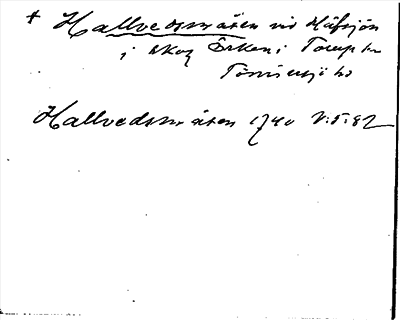 + Hallvedsmåsen vid Håfsjön
i skog Örken i Torup hd
Tönnersjö hd
Hallvedsmåsen 1740 V:5:82